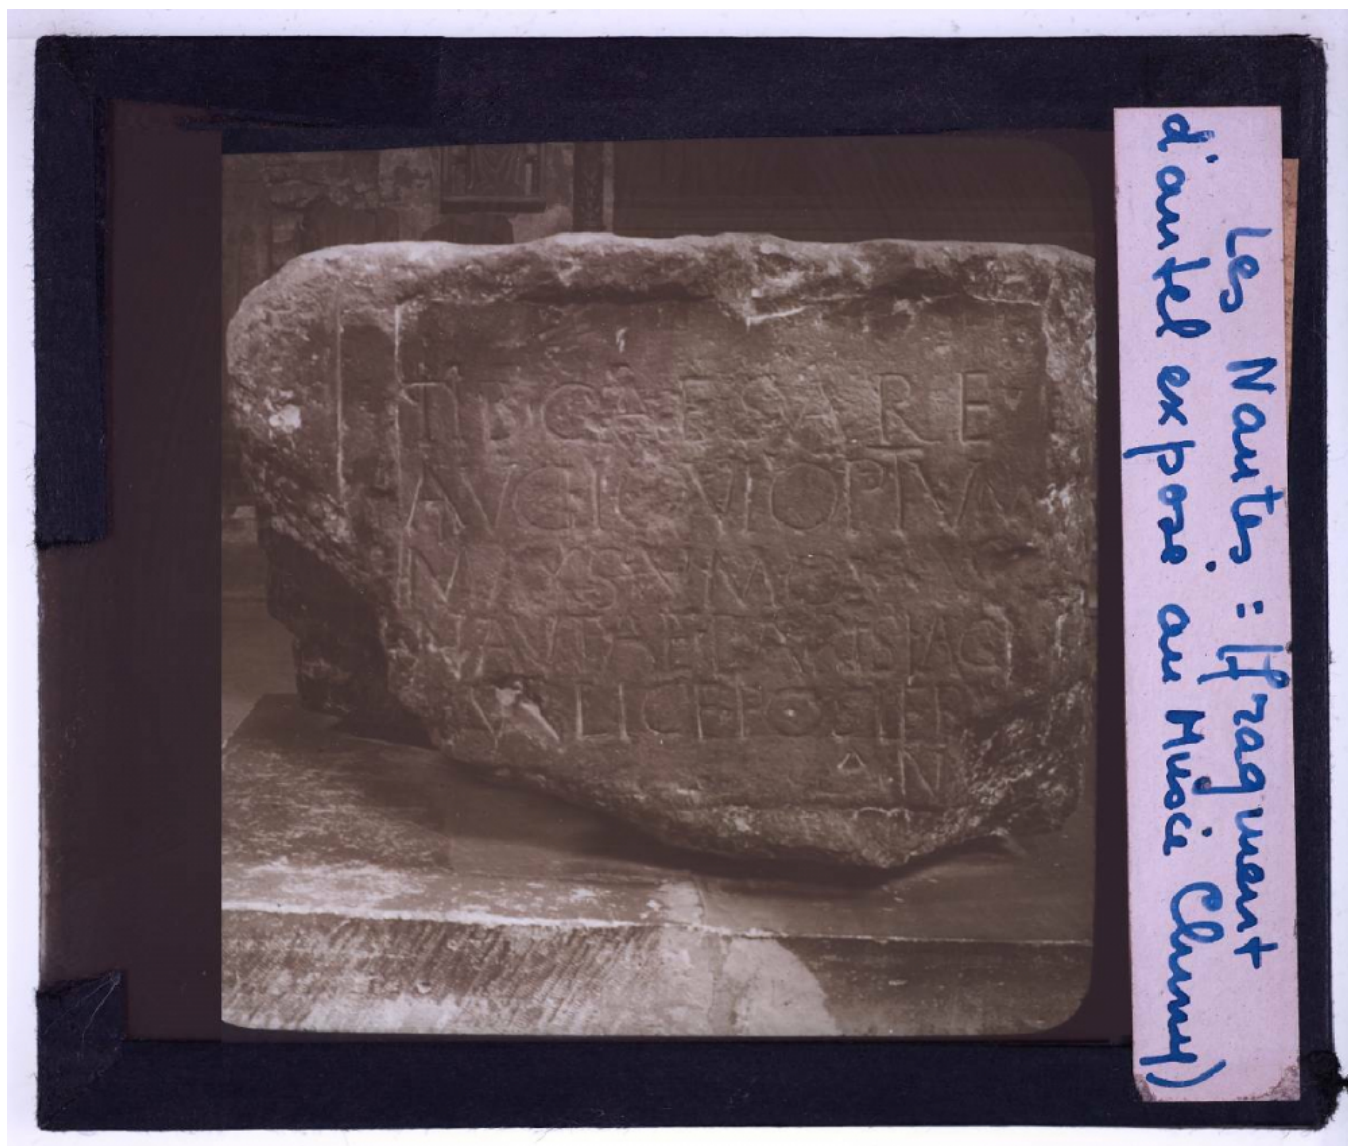 TIB CAESARE
AVG IOVI OPTVM
MAXSVMO
NAVTAE PARISIACI
PVBLICE POSIERV
N
Les Nautes : (fragment
d'autel exposé au Musée Cluny)